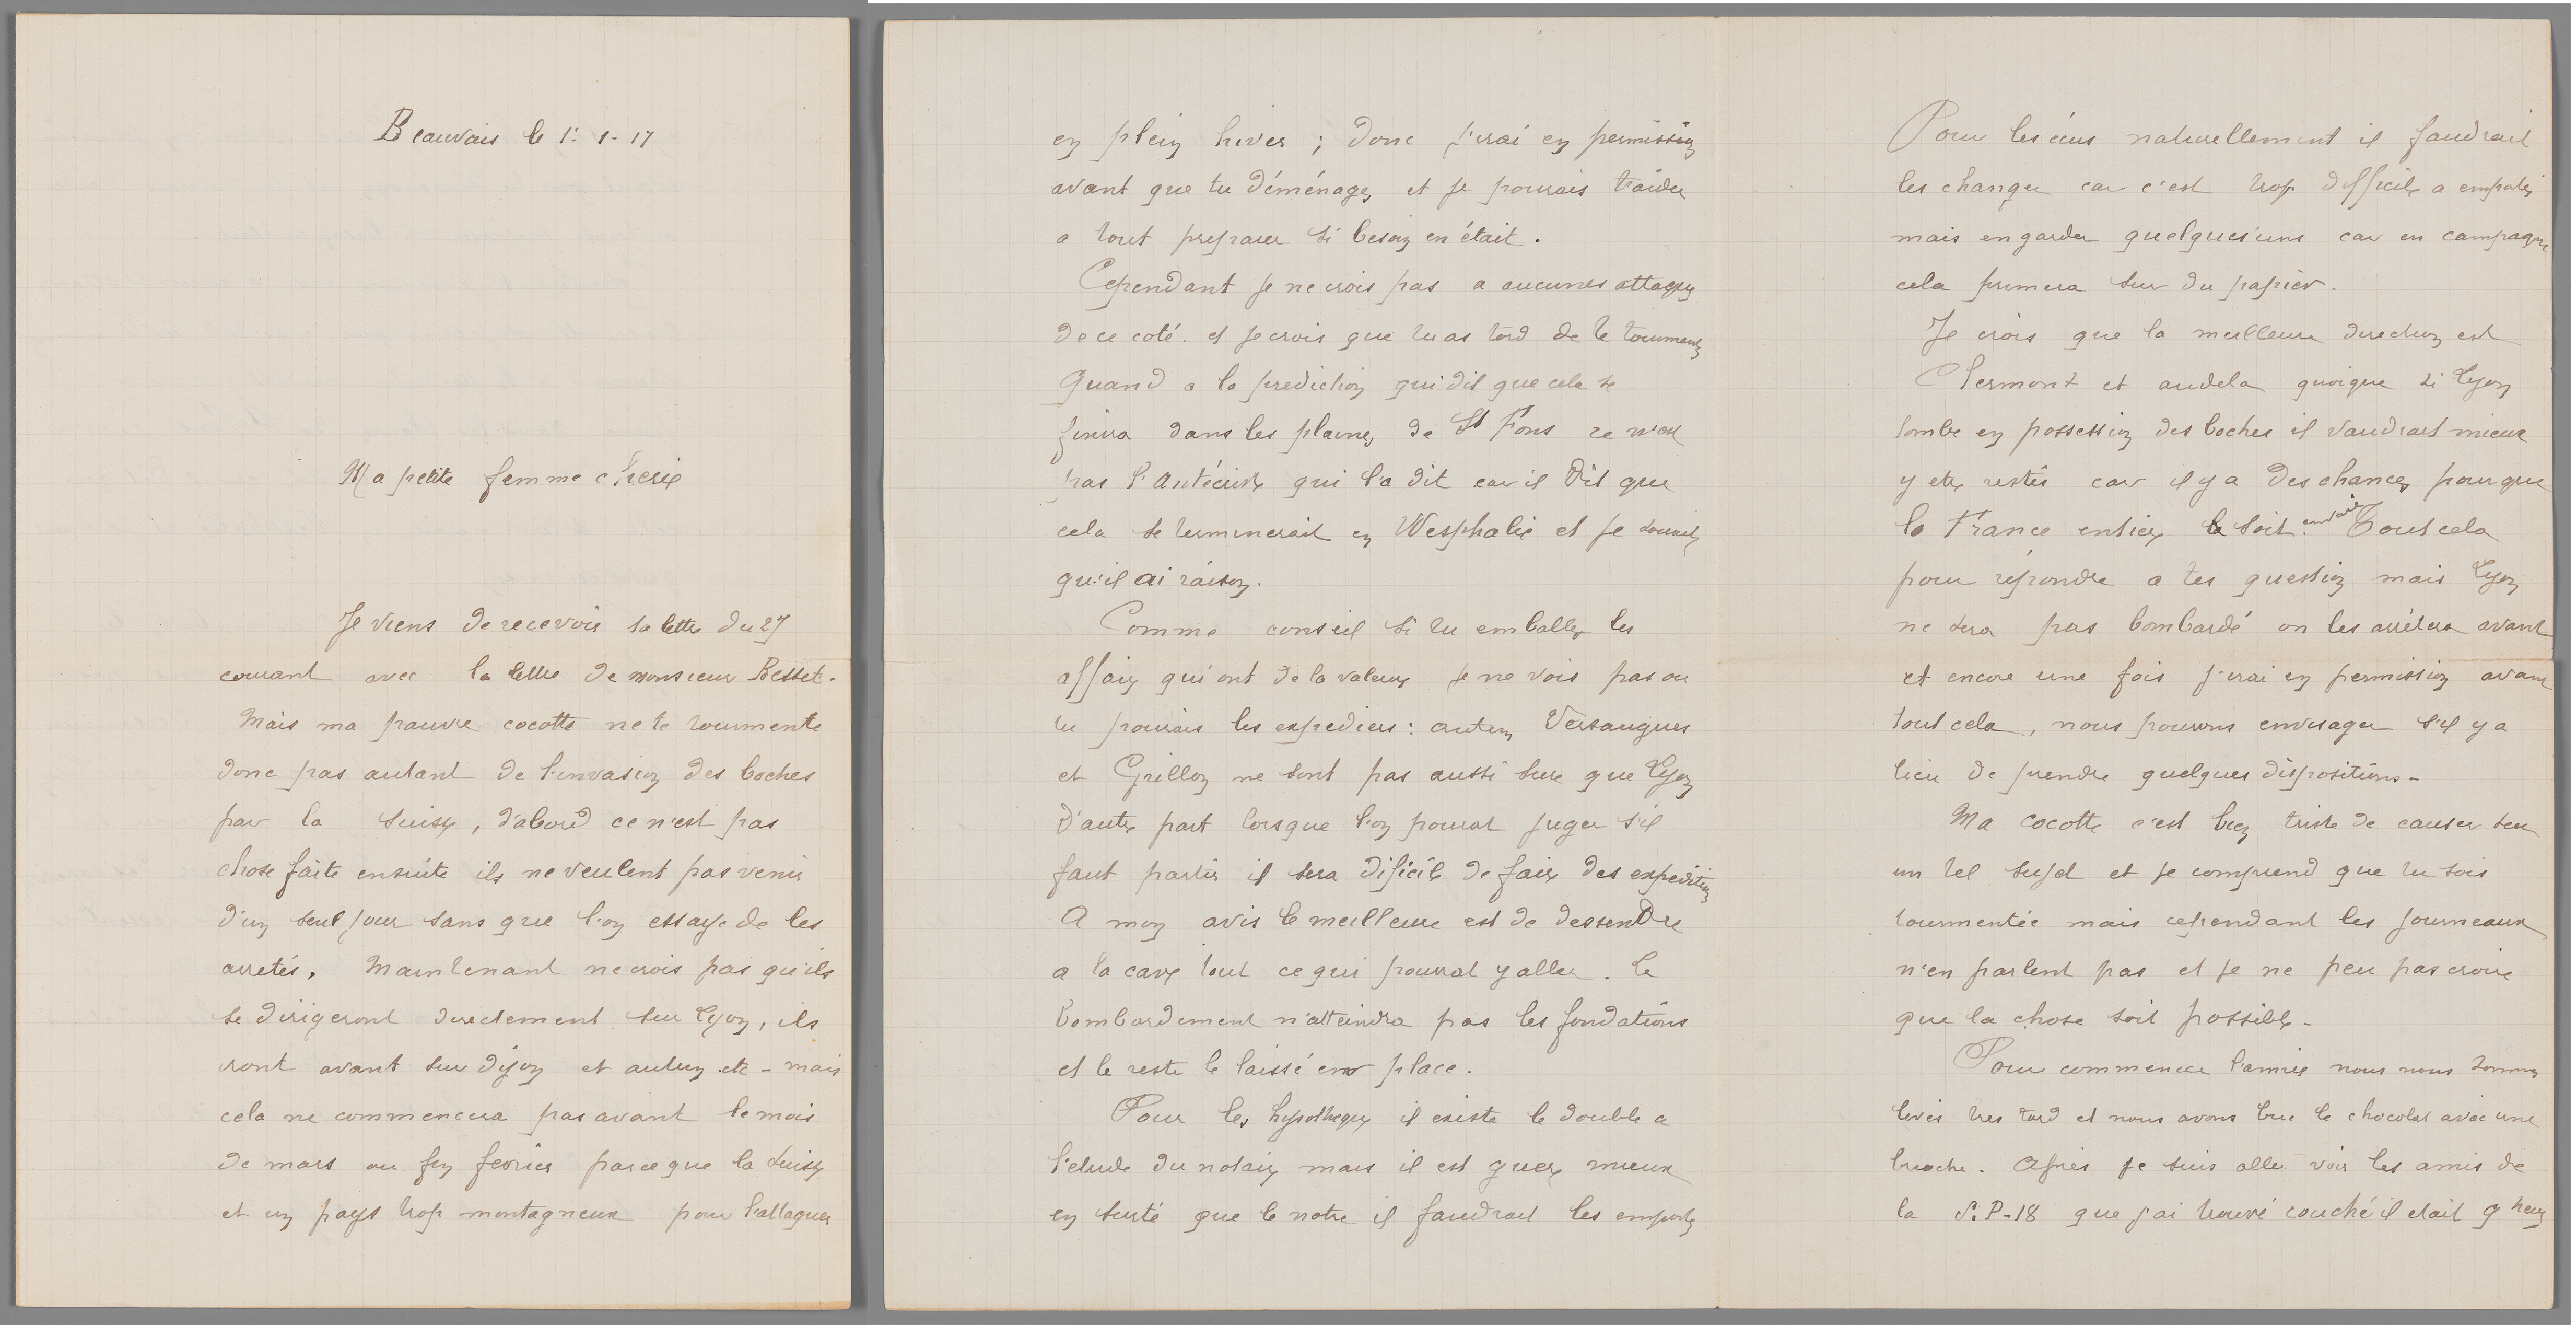 Beauvais le 1: 1-17
Ma petite femme cherie
Je viens de recevoir ta lettre du 27
courant avec la lettre de monsieur Besset.
Mais ma pauvre cocotte ne te tourmente
donc pas autant de l'invasion des boches
par la Suisse, d'abord ce n'est pas
chose faite ensuite ils ne veulent pas venir
d'un seul jour sans que l'on essaye de les
arretés. Maintenant ne crois pas qu'ils
se dirigeront directement sur Lyon, ils
iront avant sur Dijon et autun etc - mais
cela ne commencera pas avant le mois
de mars ou fin fevrier parce que la Suisse
et un pays trop montagneux pour l'attaquer
en plein hiver ; donc j'irai en permission
avant que tu déménages et je pourais t'aider
a tout preparer si besoin en était.
Cependant je ne crois pas a aucunes attaques
de ce coté. et je crois que tu as tord de te tourmenter
Quand a la prediction qui dit que cela se
finira dans les plaines de St Fons ce n'est
pas l'Antéchrist qui l'a dit car il dit que
cela se terminerait en Wesphalie et je souhaite
qu'il ai raison.
Comme conseil si tu emballes les
affaires qui ont de la valeur je ne vois pas ou
tu pourais les expediers : autun Versaugues
et Grillon ne sont pas aussi sure que Lyon
d'autre part lorsque l'on pourat juger s'il
faut partir il sera dificile de faire des expeditions
A mon avis le meilleure est de dessendre
a la cave tout ce qui pourrat y aller. le
bombardement n'atteindra pas les fondations
et le reste le laissé en place.
Pour les hypotheques il existe le double a
l'etude du notaire mais il est guere mieux
en sureté que le notre il faudrait les emporter
Pour les écus naturellement il faudrait
les changer car c'est trop difficile a emporter
mais en garder quelques'uns car en campagne
cela primera sur du papier.
Je crois que la meilleure direction est
Clermont et audela quoique si Lyon
tombe en possession des boches il vaudrait mieux
y etre restés car il y a des chances pour que
la France entiere le soit envaie. Tout cela
pour répondre a tes question mais Lyon
ne sera pas bombardé on les arrêtera avant
et encore une fois j'irai en permission avant
tout cela, nous pourons envisager s'il y a
lieu de prendre quelques dispositions -
Ma cocotte c'est bien triste de causer sur
un tel sujet et je comprend que tu sois
tourmentée mais cependant les journeaux
n'en parlent pas et je ne peu pas croire
que la chose soit possible -
Pour commencer l'année nous nous sommes
levés tres tard et nous avons bue le chocolat avec une
brioche. Apres je suis allé voir les amis de
la S.P-18 que j'ai trouvé couché il etait 9 heures